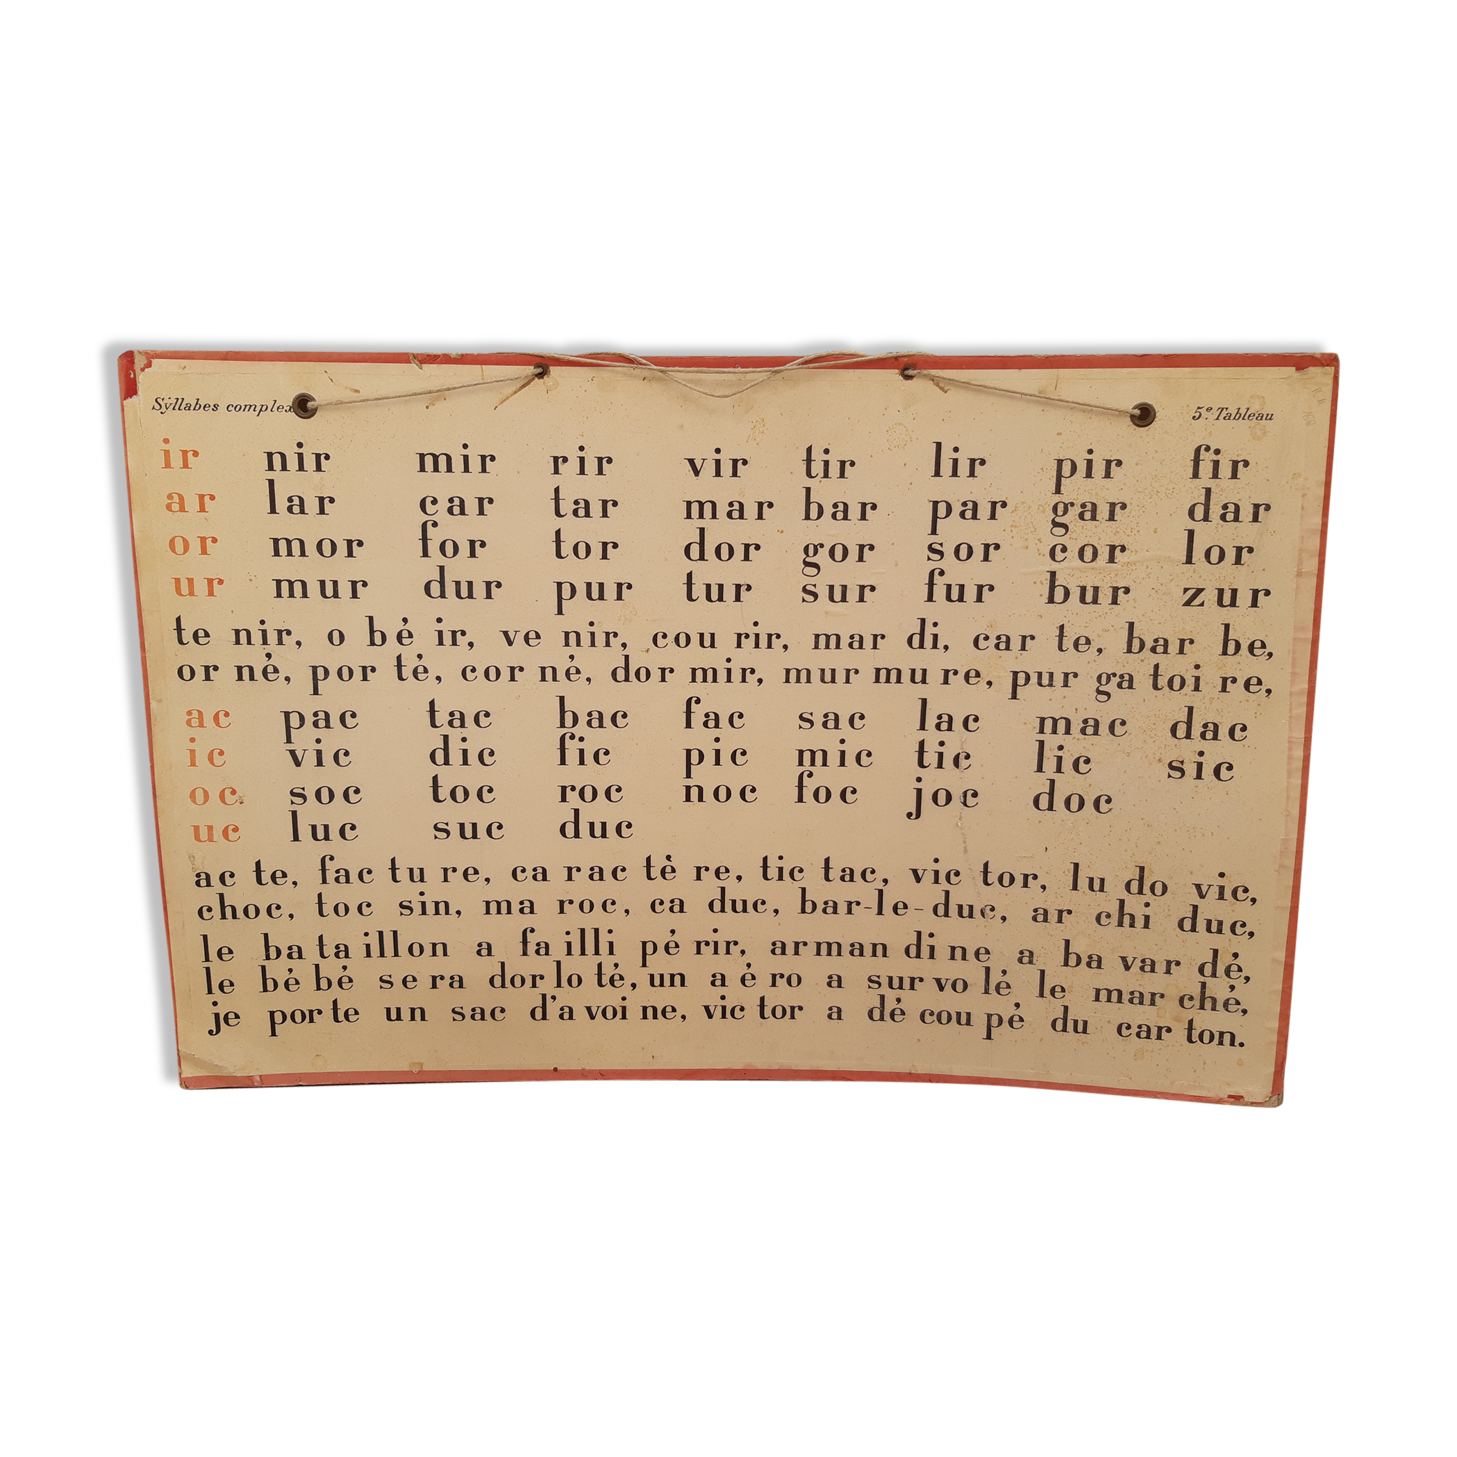 Syllabes complex 5e Tableau
ir nir mir rir vir tir lir pir fir
ar lar car tar mar bar par gar dar
or mor for tor dor gor sor cor lor
ur mur dur pur tur sur fur bur zur
te nir, o bé ir, ve nir, cou rir, mar di, car te, bar be,
or né, por té, cor né, dor mir, mur mu re, pur ga toi re,
ac pac tac bac fac sac lac mac dac
ic vic dic fic pic mic tic lic sic
oc soc toc roc noc foc joc doc
uc luc suc duc
ac te, fac tu re, ca rac tè re, tic tac, vic tor, lu do vic,
choc, toc sin, ma roc, ca duc, bar-le-duc, ar chi duc,
le ba ta illon a fa illi pé rir, arman di ne a ba var dé,
le bé bé se ra dor lo té, un a é ro a sur vo lé le mar ché,
je por te un sac d'a voi ne, vic tor a dé cou pé du car ton.